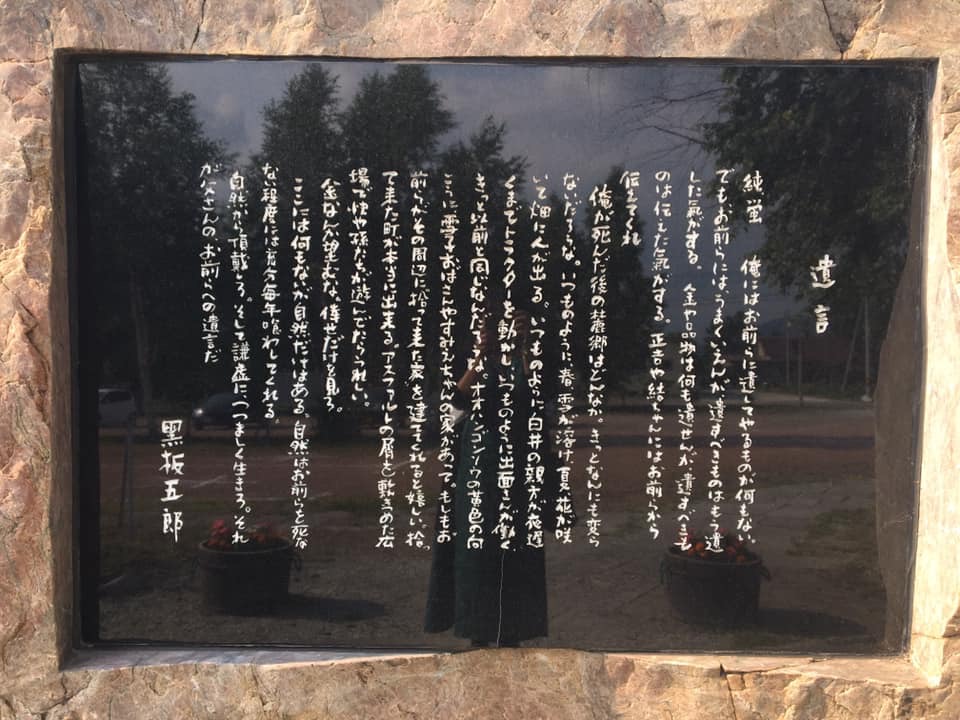 遺言
純 蛍 俺にはお前らに遺してやるものが何もない。
でもお前らには、うまくいえんが遺すべきものはもう遺
した気がする。 金や品物は何も遺せんが、遺すべきも
のは伝えた気がする。正吉や結ちゃんにはお前らから
伝えてくれ
俺が死んだ後の麓郷はどんなか。きっとなんにも変ら
ないだろうな。いつものように、春、雪が溶け、夏、花が咲
いて畑に人が出る。いつものように白井の親方が夜遅
くまでトラクターを動かし、いつものように出面さんが働く。
きっと以前と同じなんだろうな。オオハンゴンソウの黄色の向
こうに雪子おばさんやすみえちゃんの家があって。もしもお
前らがその周辺に拾って来た家を建ててくれると嬉しい。拾っ
て来た町が本当に出来る。アスファルトの屑を敷きつめた広
場で快や孫たちが遊んでたらうれしい。
金なんか望むな。倖せだけを見ろ。
ここには何もないが自然だけはある。自然はお前らを死な
ない程度には充分毎年喰わしてくれる。
自然から頂戴しろ。そして謙虚に、つつましく生きろ。それ
が父さんのお前らへの遺言だ
黒板五郎